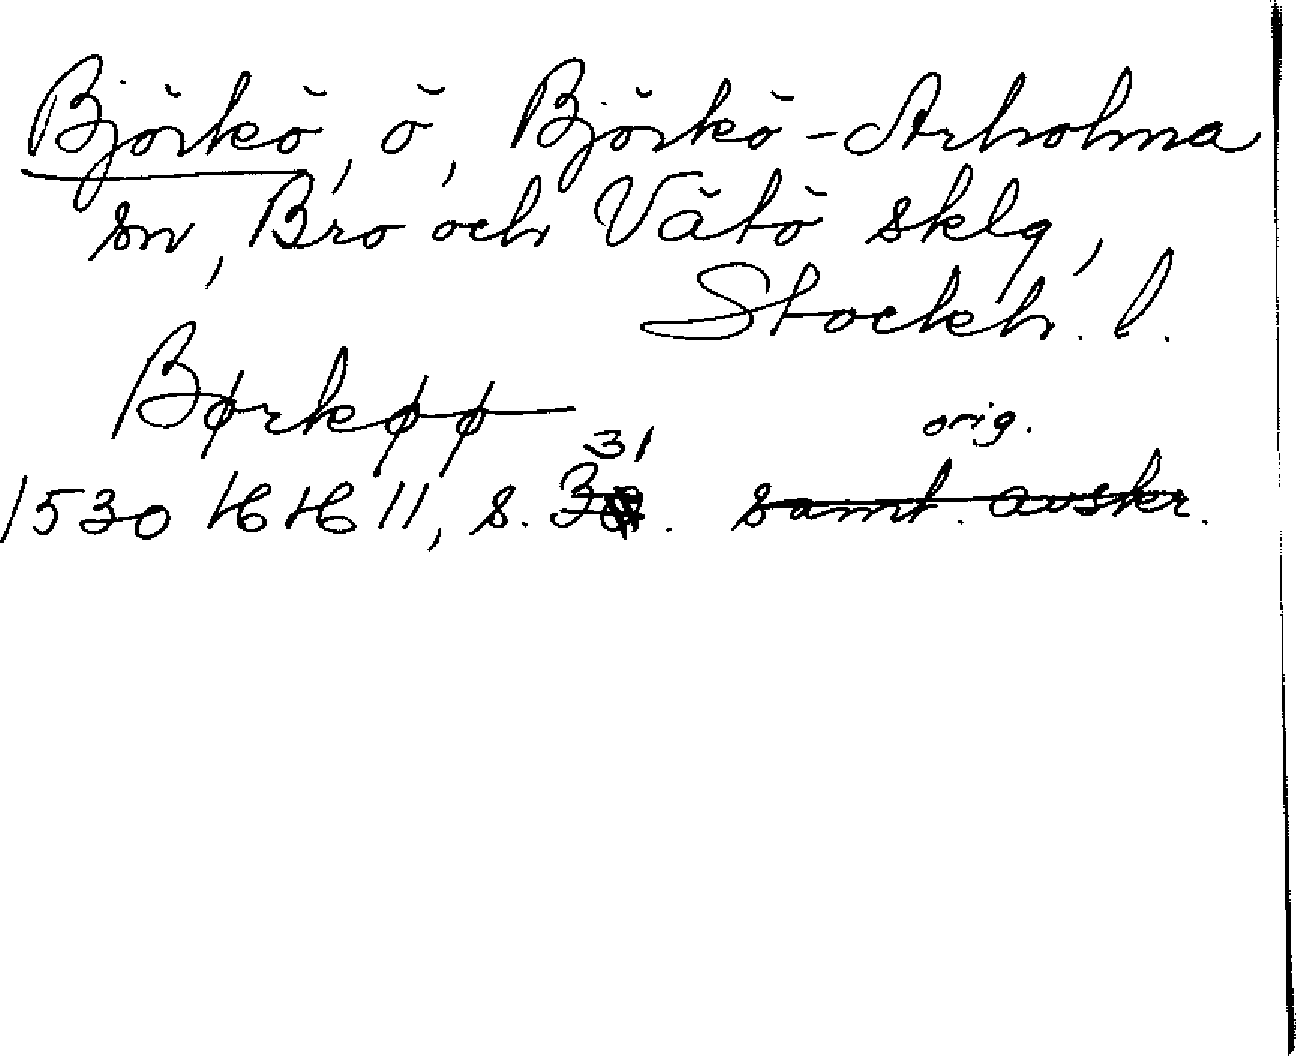 Björkö, ö, Björkö-Arholma
sn, Bro och Vätö sklg,
Stockh. l.
Børkøø
orig.
31
1530 HH 11, s. samt. avskr.